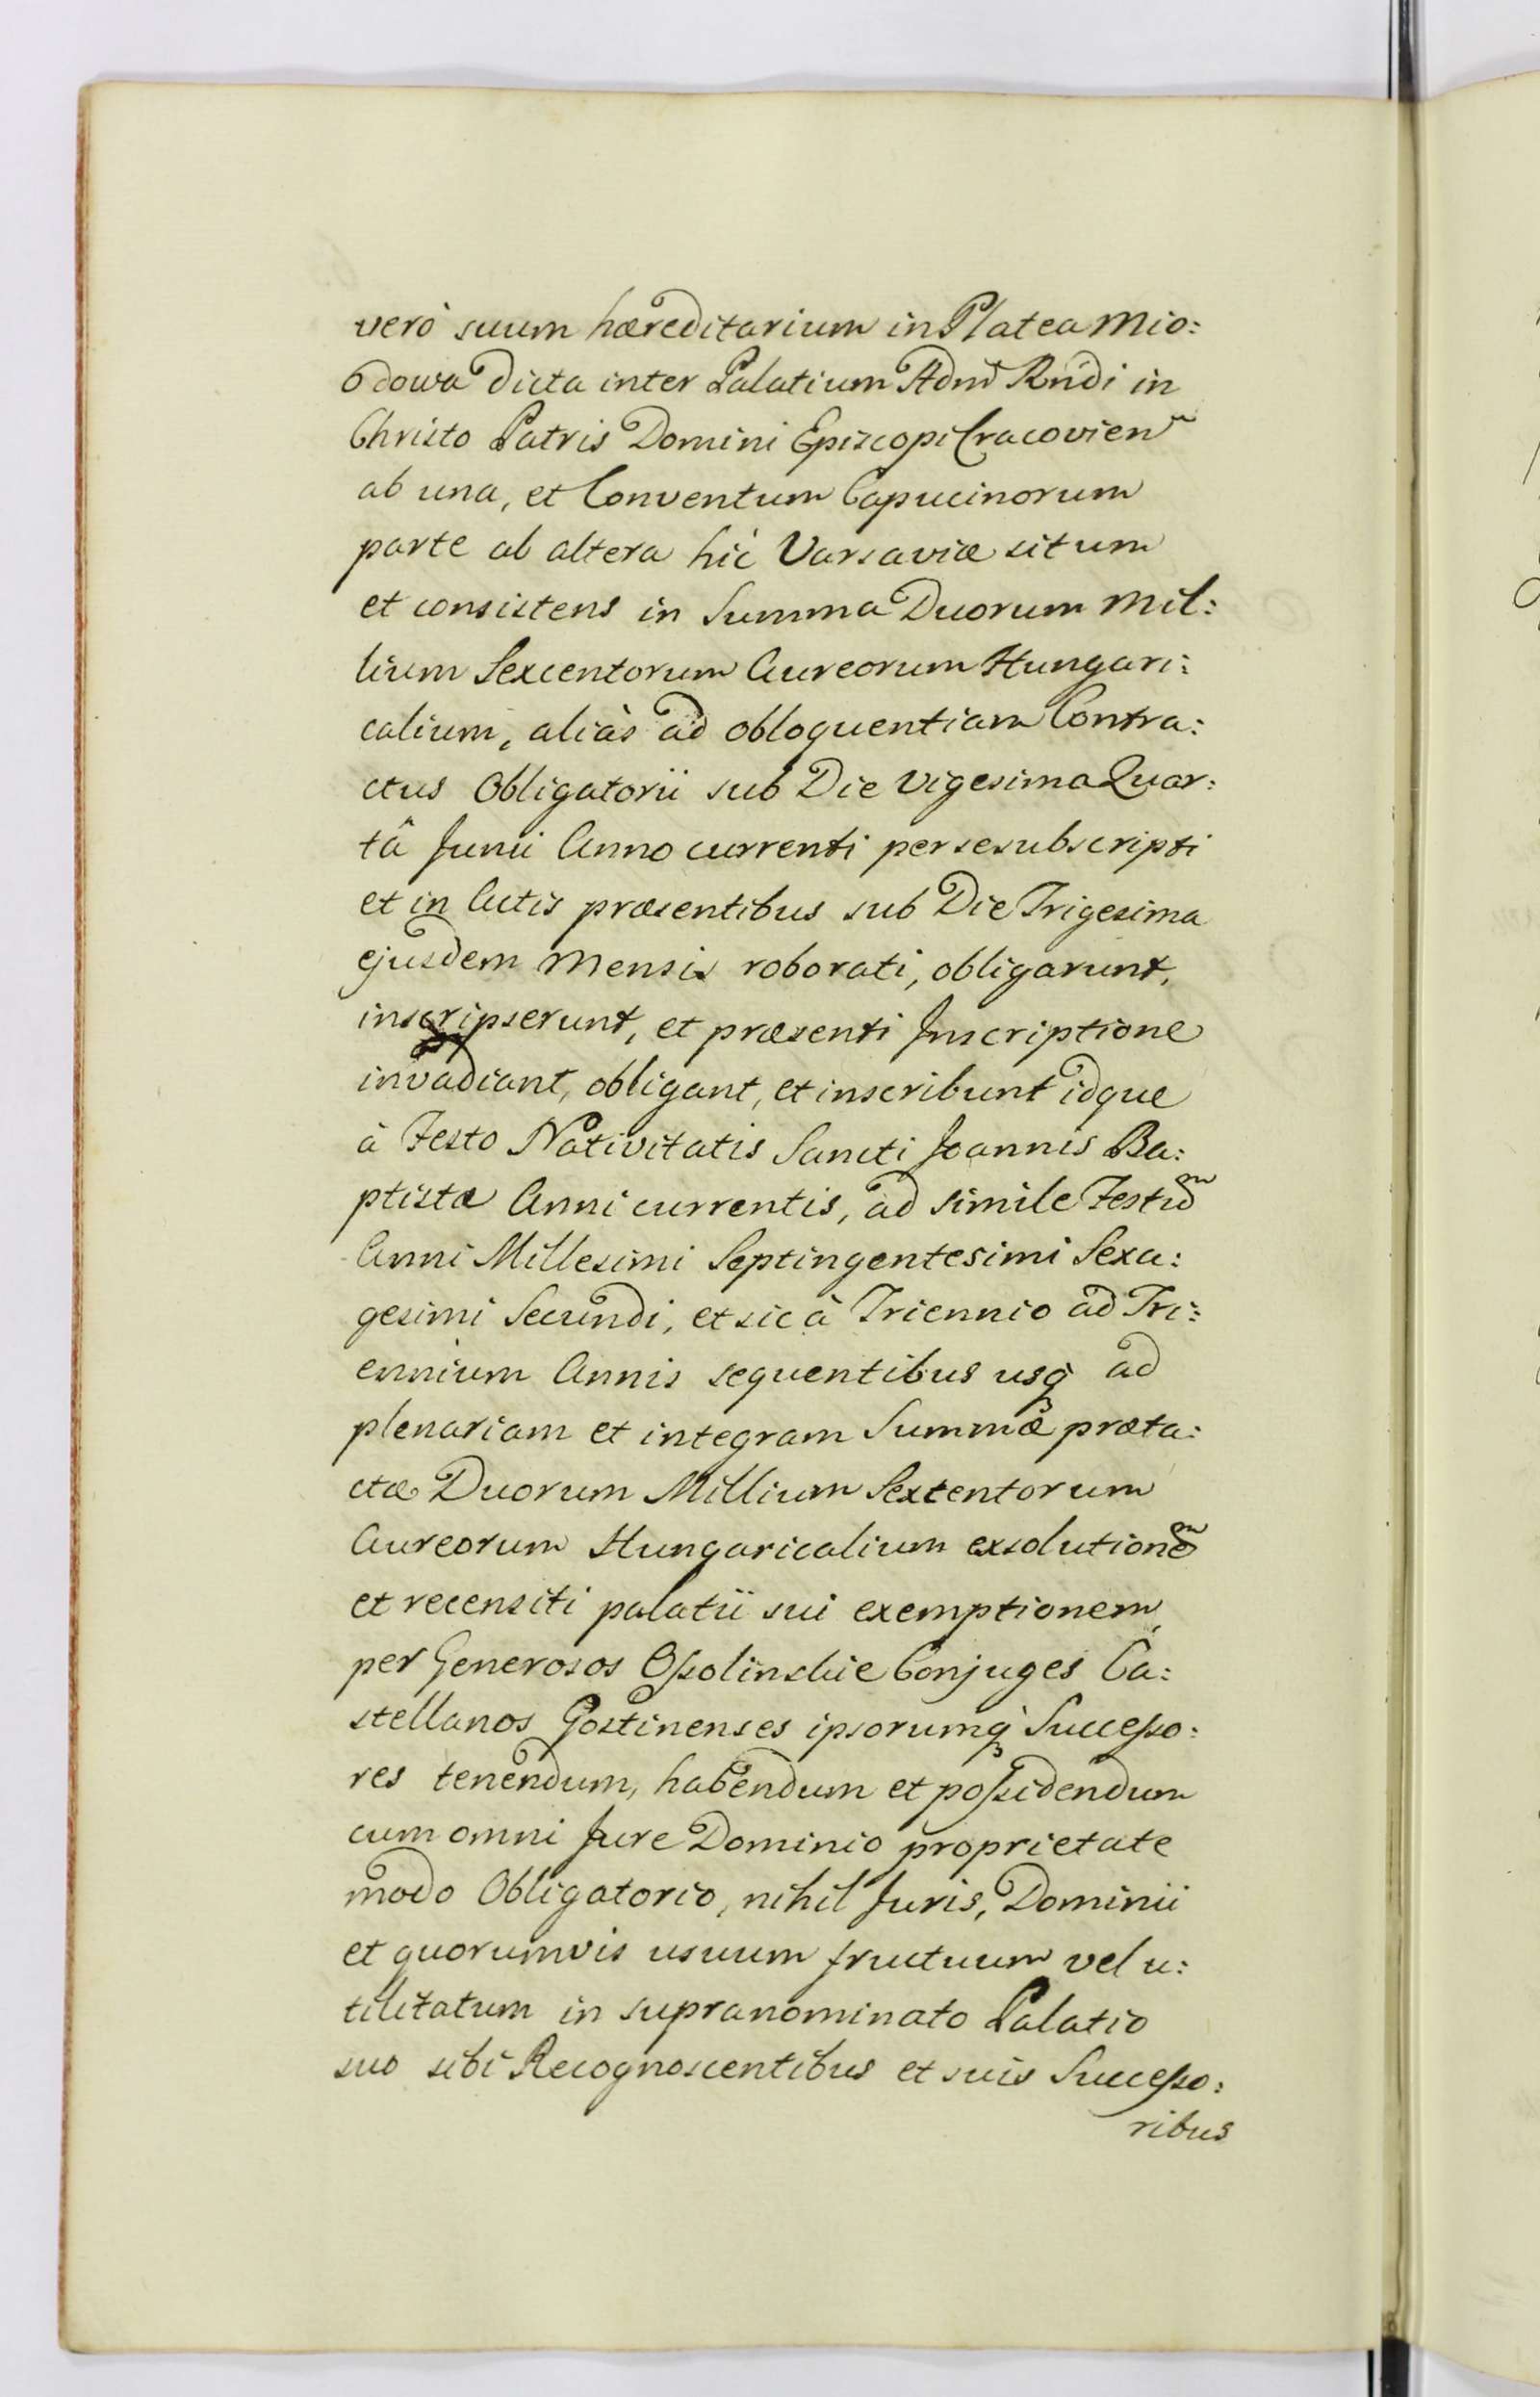 verò suum hæreditarium in Platea Mio:
odowa dicta inter Palatium Adm Rndi in
Christo Patris Domini Episcopi Cracovien
ab una, et Conventum Capucinorum
parte ab altera hic Varsaviæ situm
et consistens in Summa Duorum Mil:
lium Sexcentorum Aureorum Hungari:
calium, aliàs ad obloquentiam Contra:
ctus Obligatorii sub Die Vigesima Quar:
tâ Junii Anno currenti per se subscripti
et in Actis præsentibus sub Die Trigesima
ejusdem Mensis roborati, obligarunt,
inscripserunt, et præsenti Inscriptione
invadiant, obligant, et inscribunt idque
à Festo Nativitatis Sancti Joannis Ba:
ptistæ Anni currentis, ad simile Festum
Anni Millesimi Septingentesimi Sexa:
gesimi Secundi, et sic à Triennio ad Tri:
ennium Annis sequentibus usq ad
plenariam et integram Summæ præta:
ctæ Duorum Millium Sexcentorum
Aureorum Hungaricalium exsolutionem
et recensiti palatii sui exemptionem,
per Generosos Ossolinskie Conjuges Ca:
stellanos Gostinenses ipsorumq Successo:
res tenendum, habendum et possidendum
cum omni Jure Dominio proprietate
modo Obligatorio, nihil Juris, Dominii
et quorumvis usuum fructuum vel u:
tilitatum in supranominato Palatio
suo sibi Recognoscentibus et suis Successo:
ribus